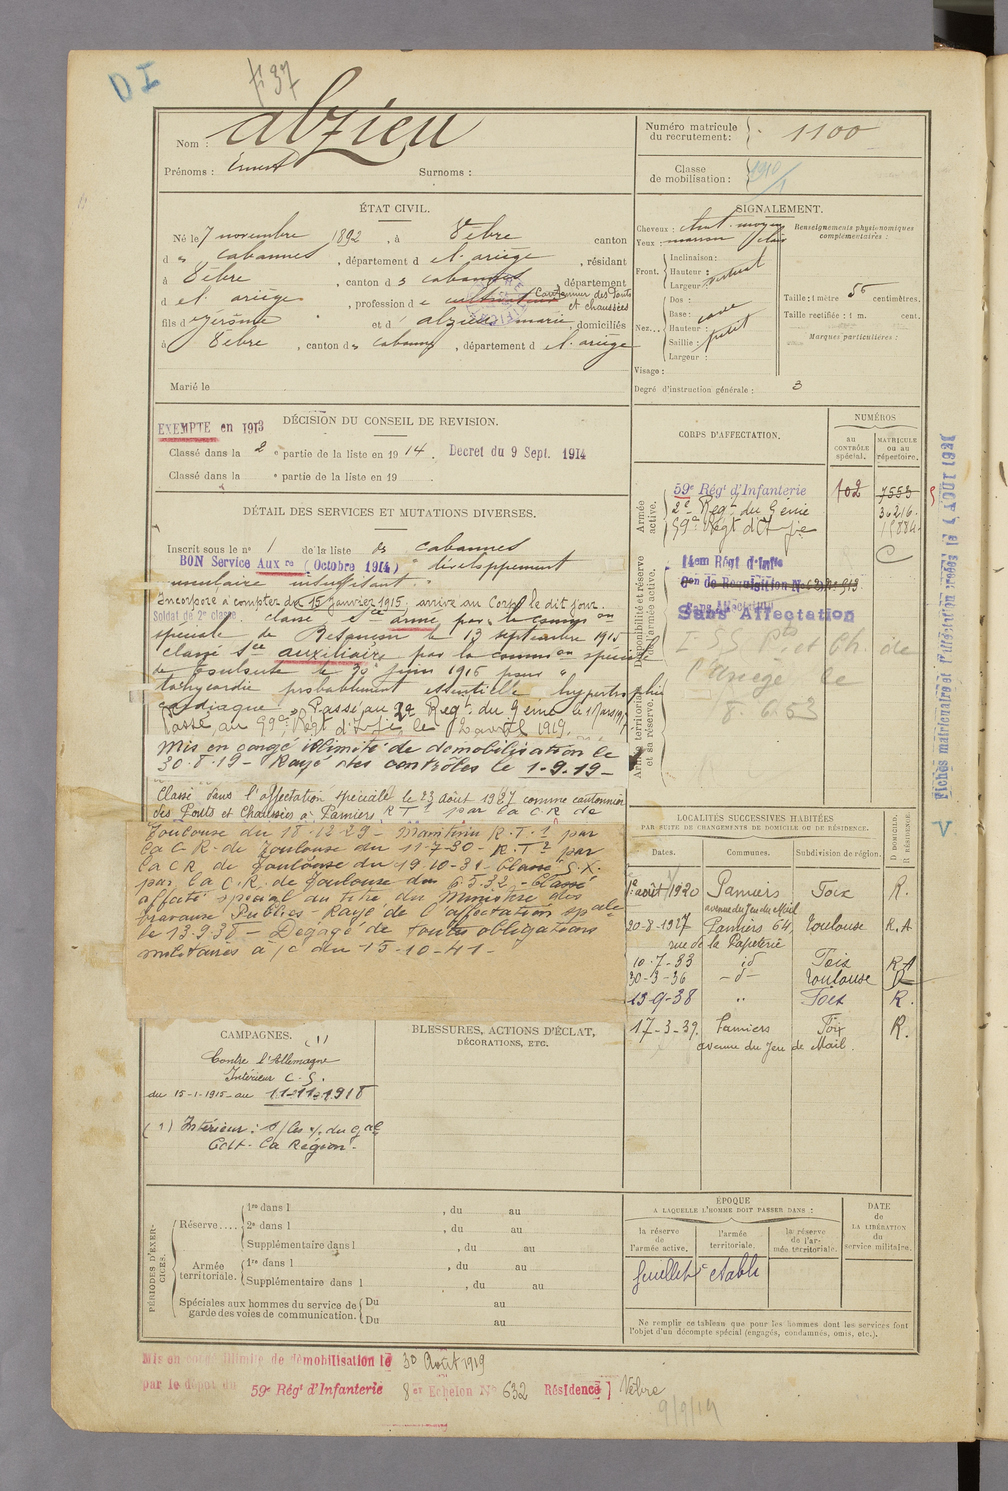 D I
F 37
Nom : Alzieu
Prénoms : Ernest Surnoms :
Numéro matricule du recrutement : 1100
Classe de mobilisation : 1910/1
ÉTAT CIVIL.
Né le 7 novembre 1892, à Vèbre canton
d es Cabannes, département d e l'Ariège, résidant
à Vèbre, canton d s Cabannes département
d e l'Ariège, profession d e cultivateur Cantonnier des Ponts
et chaussées
fils d e Jérôme et d' Alzieu Marie, domiciliés
à Vèbre, canton d s Cabannes, département d e l'Ariège
Marié le
SIGNALEMENT.
Cheveux : chat. moyen
Yeux : marron
Front. Inclinaison :
Hauteur :
Largeur : vertical
Nez... Dos :
Base : cave
Hauteur :
Saillie : petit
Largeur :
Visage :
Renseignements physionomiques complémentaires :
Taille : 1 mètre 56 centimètres.
Taille rectifiée : 1 m. cent.
Marques particulières :
Degré d'instruction générale : 3
DÉCISION DU CONSEIL DE REVISION.
EXEMPTE en 1913
Classé dans la 2 e partie de la liste en 19 14. Décret du 9 Sept. 1914
Classé dans la e partie de la liste en 19
DÉTAIL DES SERVICES ET MUTATIONS DIVERSES.
Inscrit sous le n° 1 de la liste de Cabannes
BON Service Aux re (Octobre 1914) développement
musculaire insuffisant.
Incorporé à compter du 15 Janvier 1915, arrivé au Corps le dit jour.
Soldat de 2e classe, classé Sce armé par la comm on
spéciale de Besançon le 13 septembre 1915
classé Sce auxiliaire par la comm on spéciale
de Toulouse le 30 juin 1916 pour
tachycardie probablement essentielle hypertrophie
cardiaque. Passé au 2e Regt. du Génie le 1 Mars 19
Passé au 99e Regt d'Infie le 2 avril 1919.
Mis en congé illimité de démobilisation le
30-8-19 - Rayé des contrôles le 1-9-19 -
Classé dans l'affectation spéciale le 23 août 1927 comme cantonnier
des Ponts et Chaussées à Pamiers R T 1 par la C. R de
Toulouse du 18.12.29 - maintenu R.T.1 par
la C. R. de Toulouse du 11-7-30 - R.T 2 par
la C R de Toulouse du 19.10-31 Classé S.X.
par la C.R. de Toulouse du 6.5.32 - Classé
affecté spécial au titre du Ministère des
Travaux Publics - Rayé de l'affectation sp ale
le 13.9.38 - Dégagé de toutes obligations
militaires à /c du 15-10-41 -
CORPS D'AFFECTATION.
NUMÉROS
au CONTRÔLE spécial.
MATRICULE ou au répertoire.
Armée active.
59e Régt d'Infanterie 102 7553
2e Régt du Génie 36216
99e Régt d'Infie 15884
Disponibilité et réserve de l'armée active.
14em Régt d'Inf
Con de Requisition N°
Sans Affectation
Sans Affectation
C
I SS Pts et Ch. de
l'Ariège le
8.6.53
Armée territoriale et sa réserve.
V
LOCALITÉS SUCCESSIVES HABITÉES
PAR SUITE DE CHANGEMENTS DE DOMICILE OU DE RÉSIDENCE.
D DOMICILE. R RÉSIDENCE.
Dates. Communes. Subdivision de région.
1er août 1920 Pamiers Foix R.
avenue du Jeu du Mail
20-8-1927 Pamiers 64, Toulouse R.A
rue de la Papeterie
10-7-33 id Foix R.A
30-3-36 -d°- Toulouse R
13-9-38 " Foix R.
17-3-39. Pamiers Foix R.
avenue du Jeu de Mail.
CAMPAGNES. (1)
Contre l'Allemagne
Intérieur C. S.
du 15-1-1915 - au 11-11-1918
(1) Intérieur :
Cdt. la Région.
BLESSURES, ACTIONS D'ÉCLAT,
DÉCORATIONS, ETC.
PÉRIODES D'EXERCICES.
Réserve.... 1re dans l , du au
2e dans l , du au
Supplémentaire dans l , du au
Armée territoriale. 1re dans l , du au
Supplémentaire dans l , du au
Spéciales aux hommes du service de garde des voies de communication. Du au
Du au
ÉPOQUE
A LAQUELLE L'HOMME DOIT PASSER DANS :
la réserve de l'armée active.
l'armée territoriale.
la réserve de l'armée territoriale.
DATE de LA LIBÉRATION du service militaire.
feuillet établi
Ne remplir ce tableau que pour les hommes dont les services font
l'objet d'un décompte spécial (engagés, condamnés, omis, etc.).
Mis en congé illimité de démobilisation le 30 Août 1919
par le dépôt du 59e Régt d'Infanterie 8 er Echelon N° 632 Résidence Vèbre
9/9/19